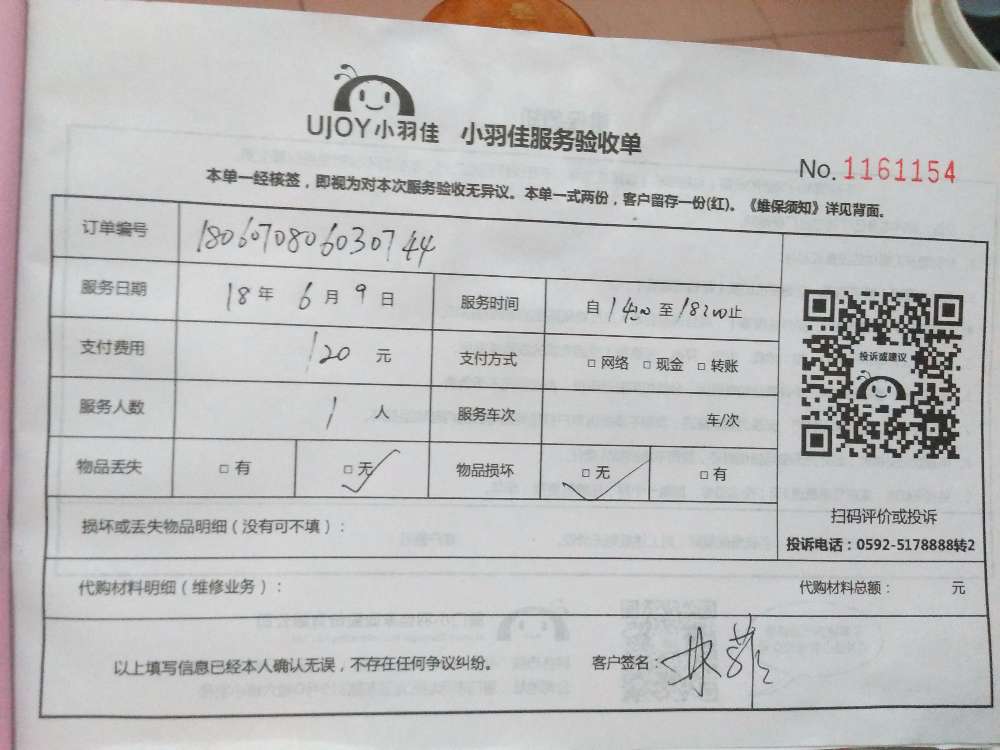 UJOY小羽佳 小羽佳服务验收单
No. 1161154
本单一经核签，即视为对本次服务验收无异议。本单一式两份，客户留存一份(红)。《维保须知》详见背面。
订单编号 1806070806030744
服务日期 18 年 6 月 9 日 服务时间 自 1400 至 1800 止
支付费用 120 元 支付方式 □ 网络 □ 现金 □ 转账
投诉或建议
服务人数 1 人 服务车次 车/次
物品丢失 □ 有 □ 无 ✓ 物品损坏 □ 无 ✓ □ 有
扫码评价或投诉
损坏或丢失物品明细（没有可不填）：
投诉电话：0592-5178888转2
代购材料明细（维修业务）： 代购材料总额： 元
以上填写信息已经本人确认无误，不存在任何争议纠纷。 客户签名：林菲